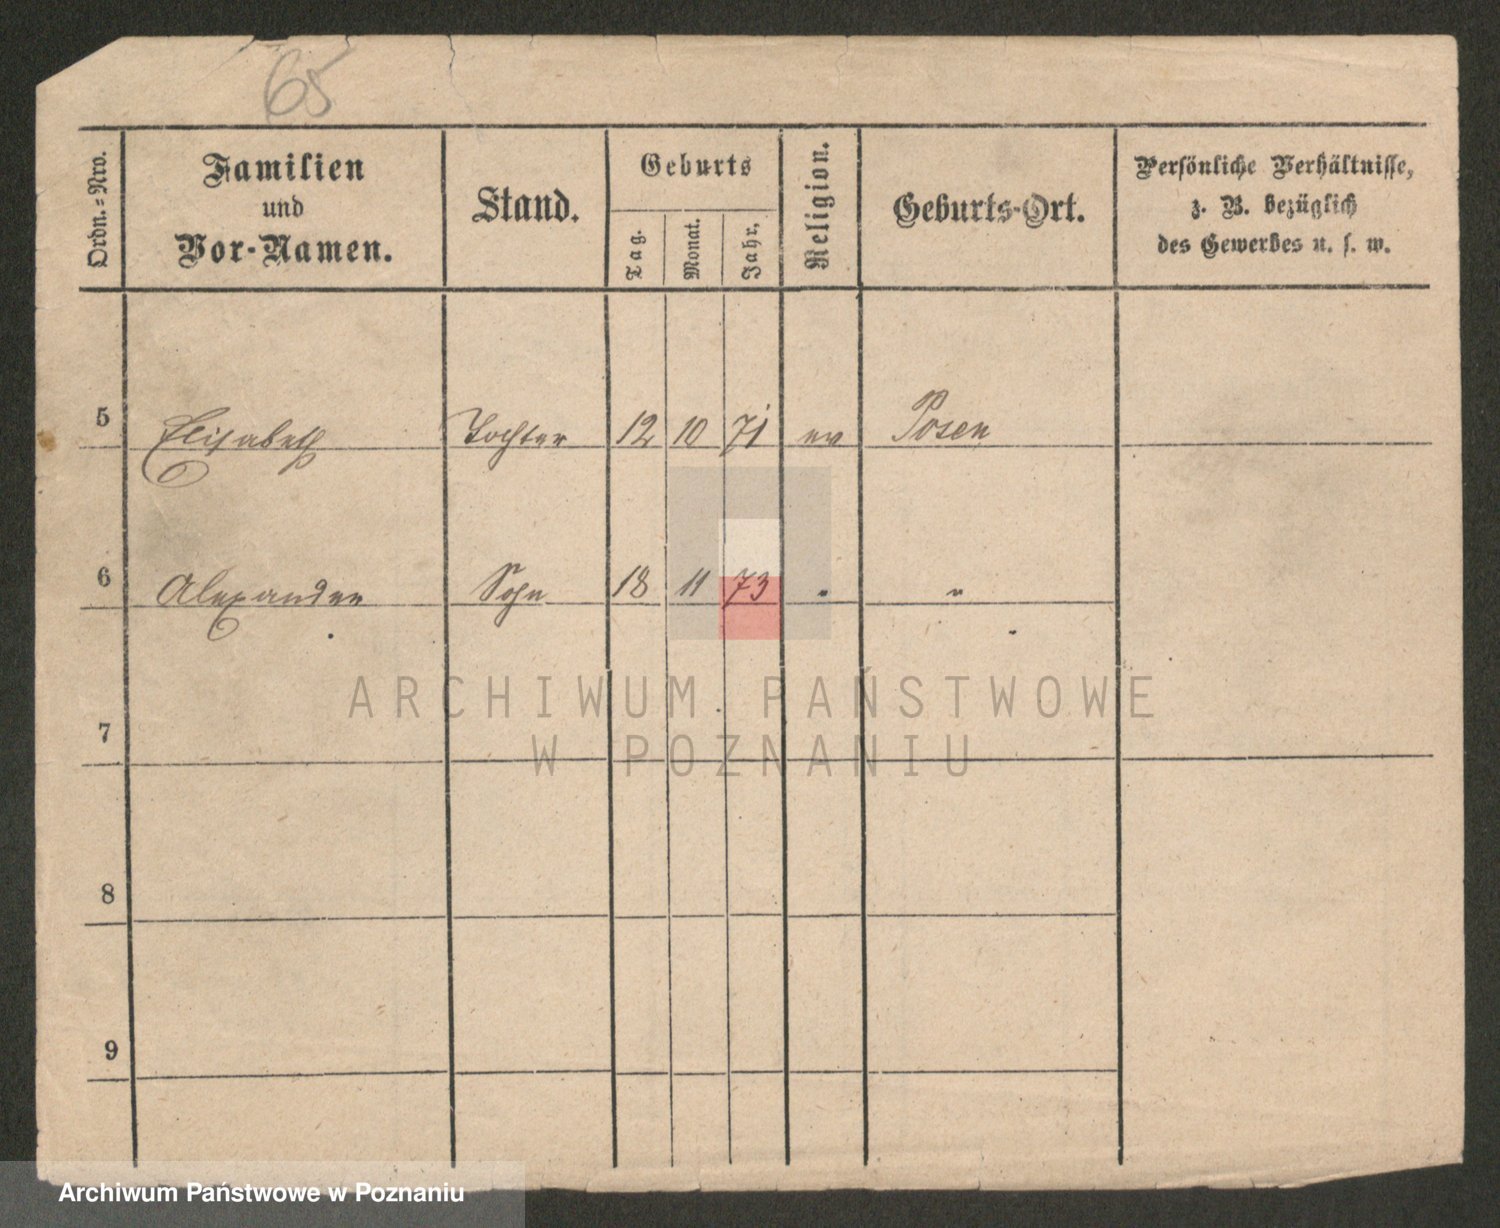 65
Ordn.=Nro.
Familien
und
Vor-Namen.
Stand.
Geburts
Tag.
Monat.
Jahr,
Religion.
Geburts-Ort.
Persönliche Verhältnisse,
z. B. bezüglich
des Gewerbes u. s. w.
5 Elisabeth Tochter 12 10 71 ev Posen
6 Alexander Sohn 18 11 73 " "
7
8
9
ARCHIWUM PAŃSTWOWE
W POZNANIU
Archiwum Państwowe w Poznaniu